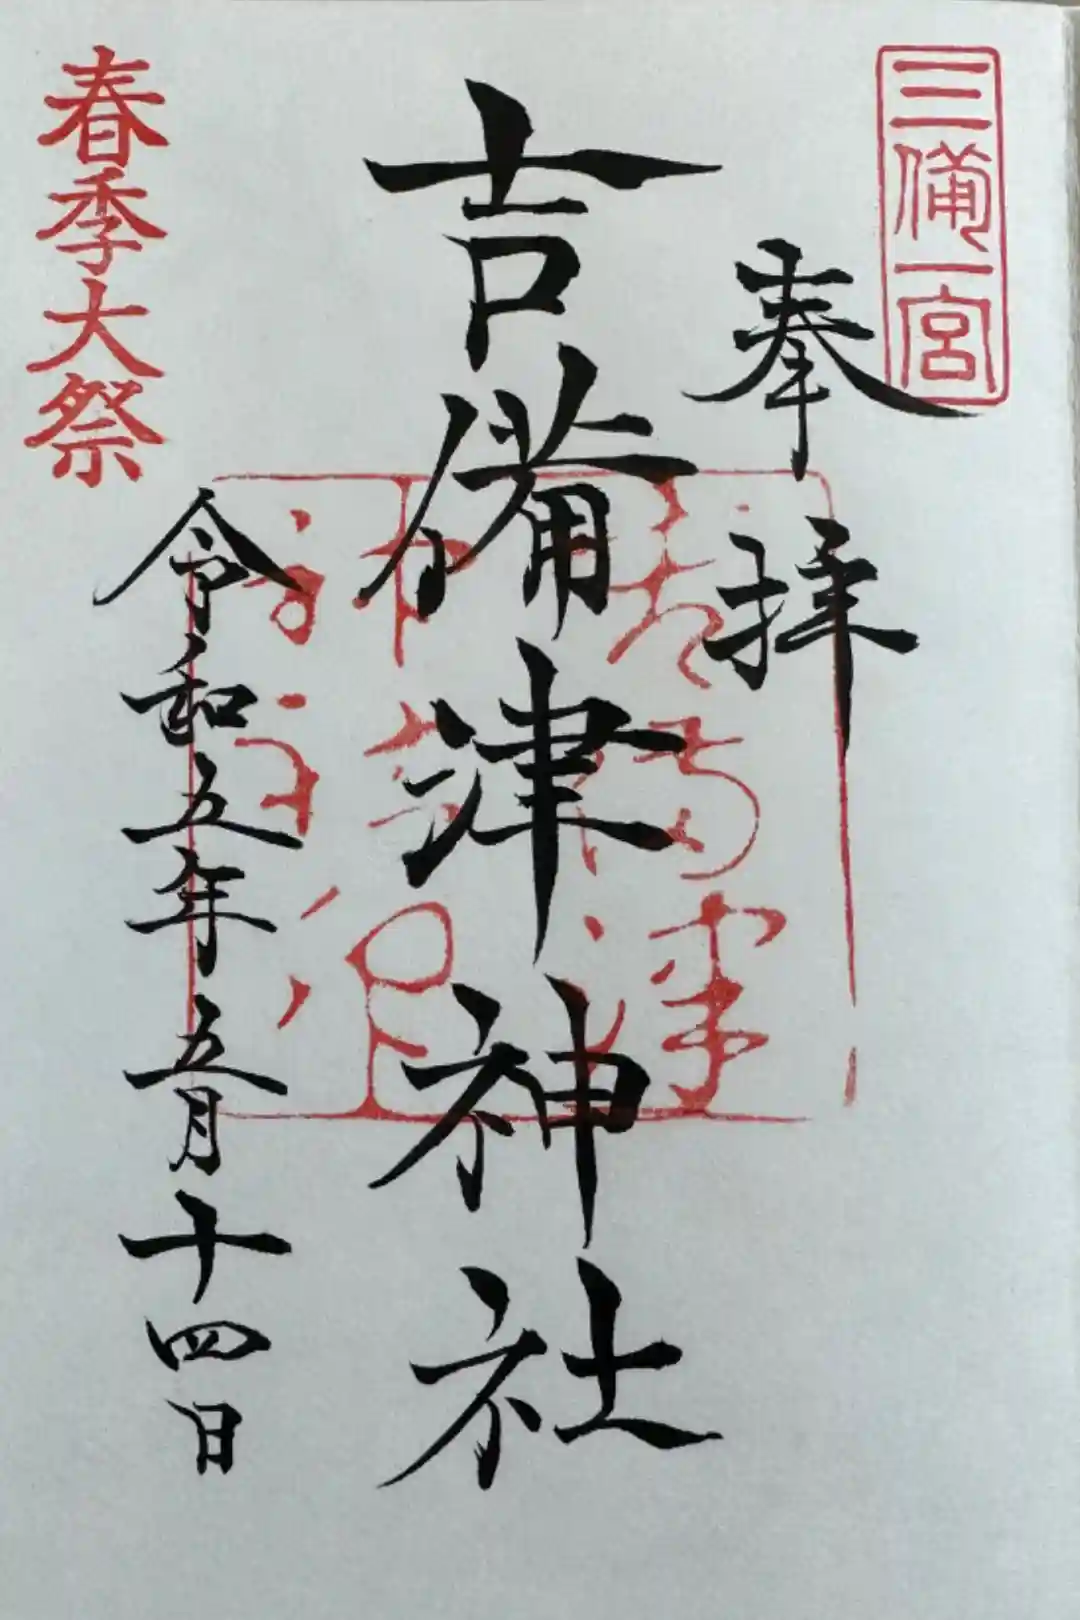 三備一宮
奉拝
吉備津神社
令和五年五月十四日
春季大祭